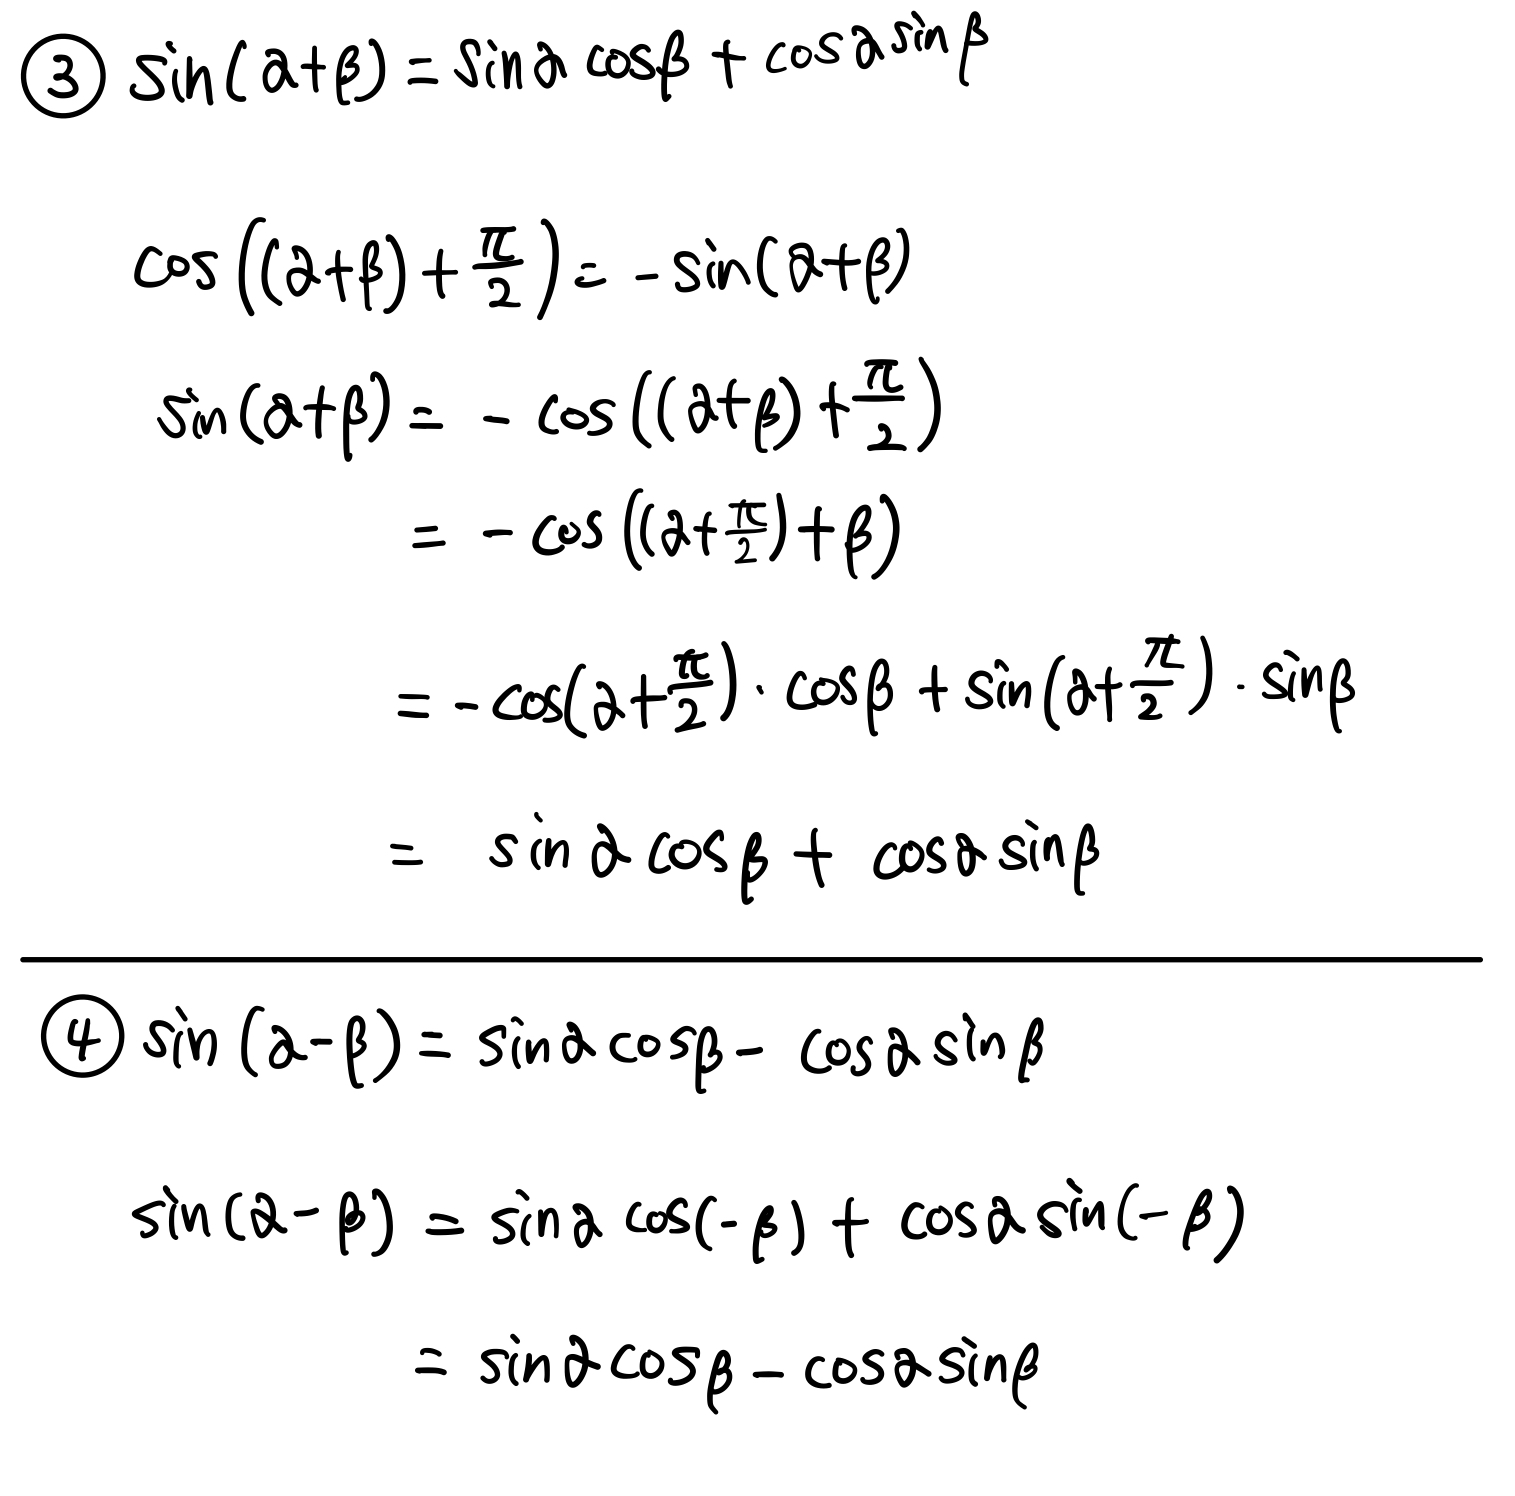 ③ sin(α+β) = sinα cosβ + cosα sinβ
cos((α+β) + π/2) = - sin(α+β)
sin(α+β) = - cos((α+β) + π/2)
= - cos((α+π/2) + β)
= - cos(α+π/2) · cosβ + sin(α+π/2) · sinβ
= sinα cosβ + cosα sinβ
④ sin(α-β) = sinα cosβ - cosα sinβ
sin(α-β) = sinα cos(-β) + cosα sin(-β)
= sinα cosβ - cosα sinβ